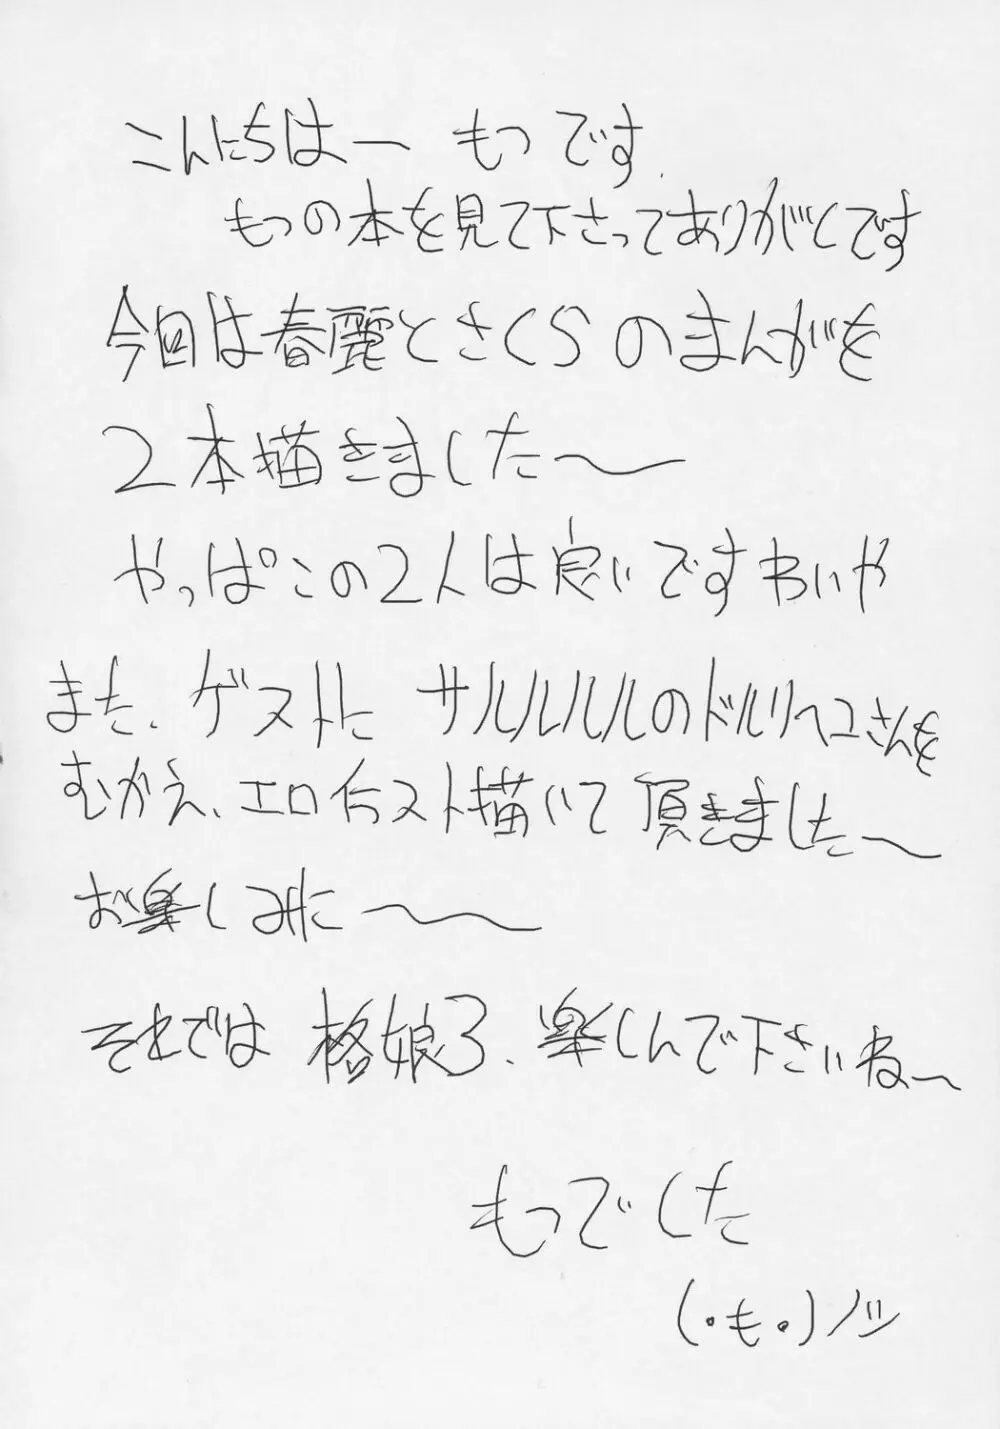 こんにちはー もつです
もつの本を見て下さってありがとです
今回は春麗とさくらのまんがを
2本描きました〜
やっぱこの2人は良いですわいや
また、ゲストに サルルルルのドルリヘユさんを
むかえ、エロイラスト描いて頂きました〜
お楽しみに〜〜
それでは 格娘3、楽しんで下さいねー
もつでした
(・も・)ノシ